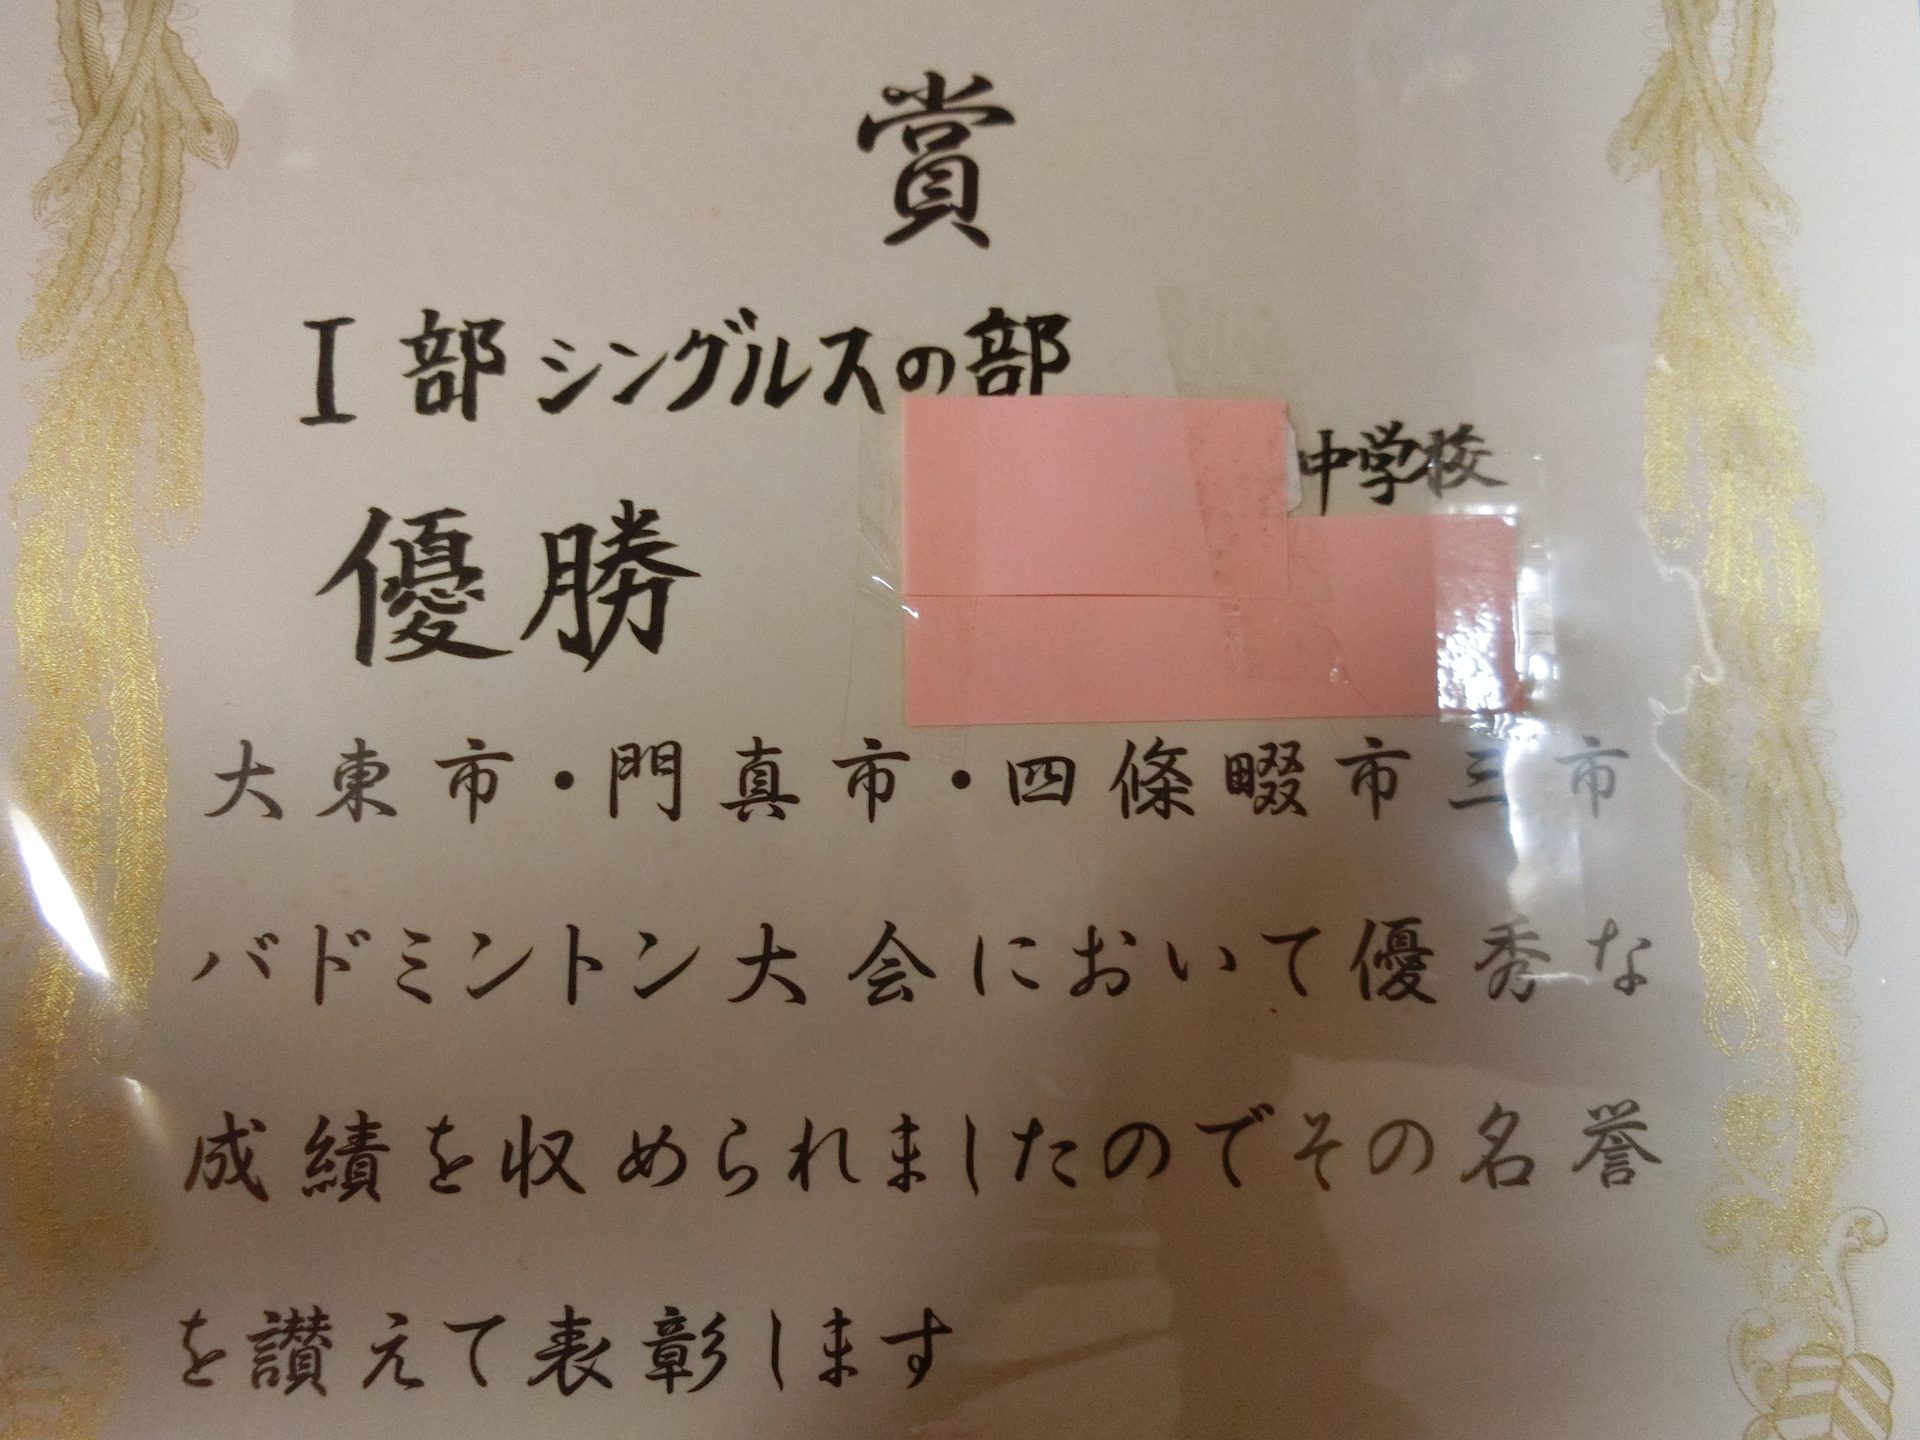 賞
I部シングルスの部
中学校
優勝
大東市・門真市・四條畷市三市
バドミントン大会において優秀な
成績を収められましたのでその名誉
を讃えて表彰します